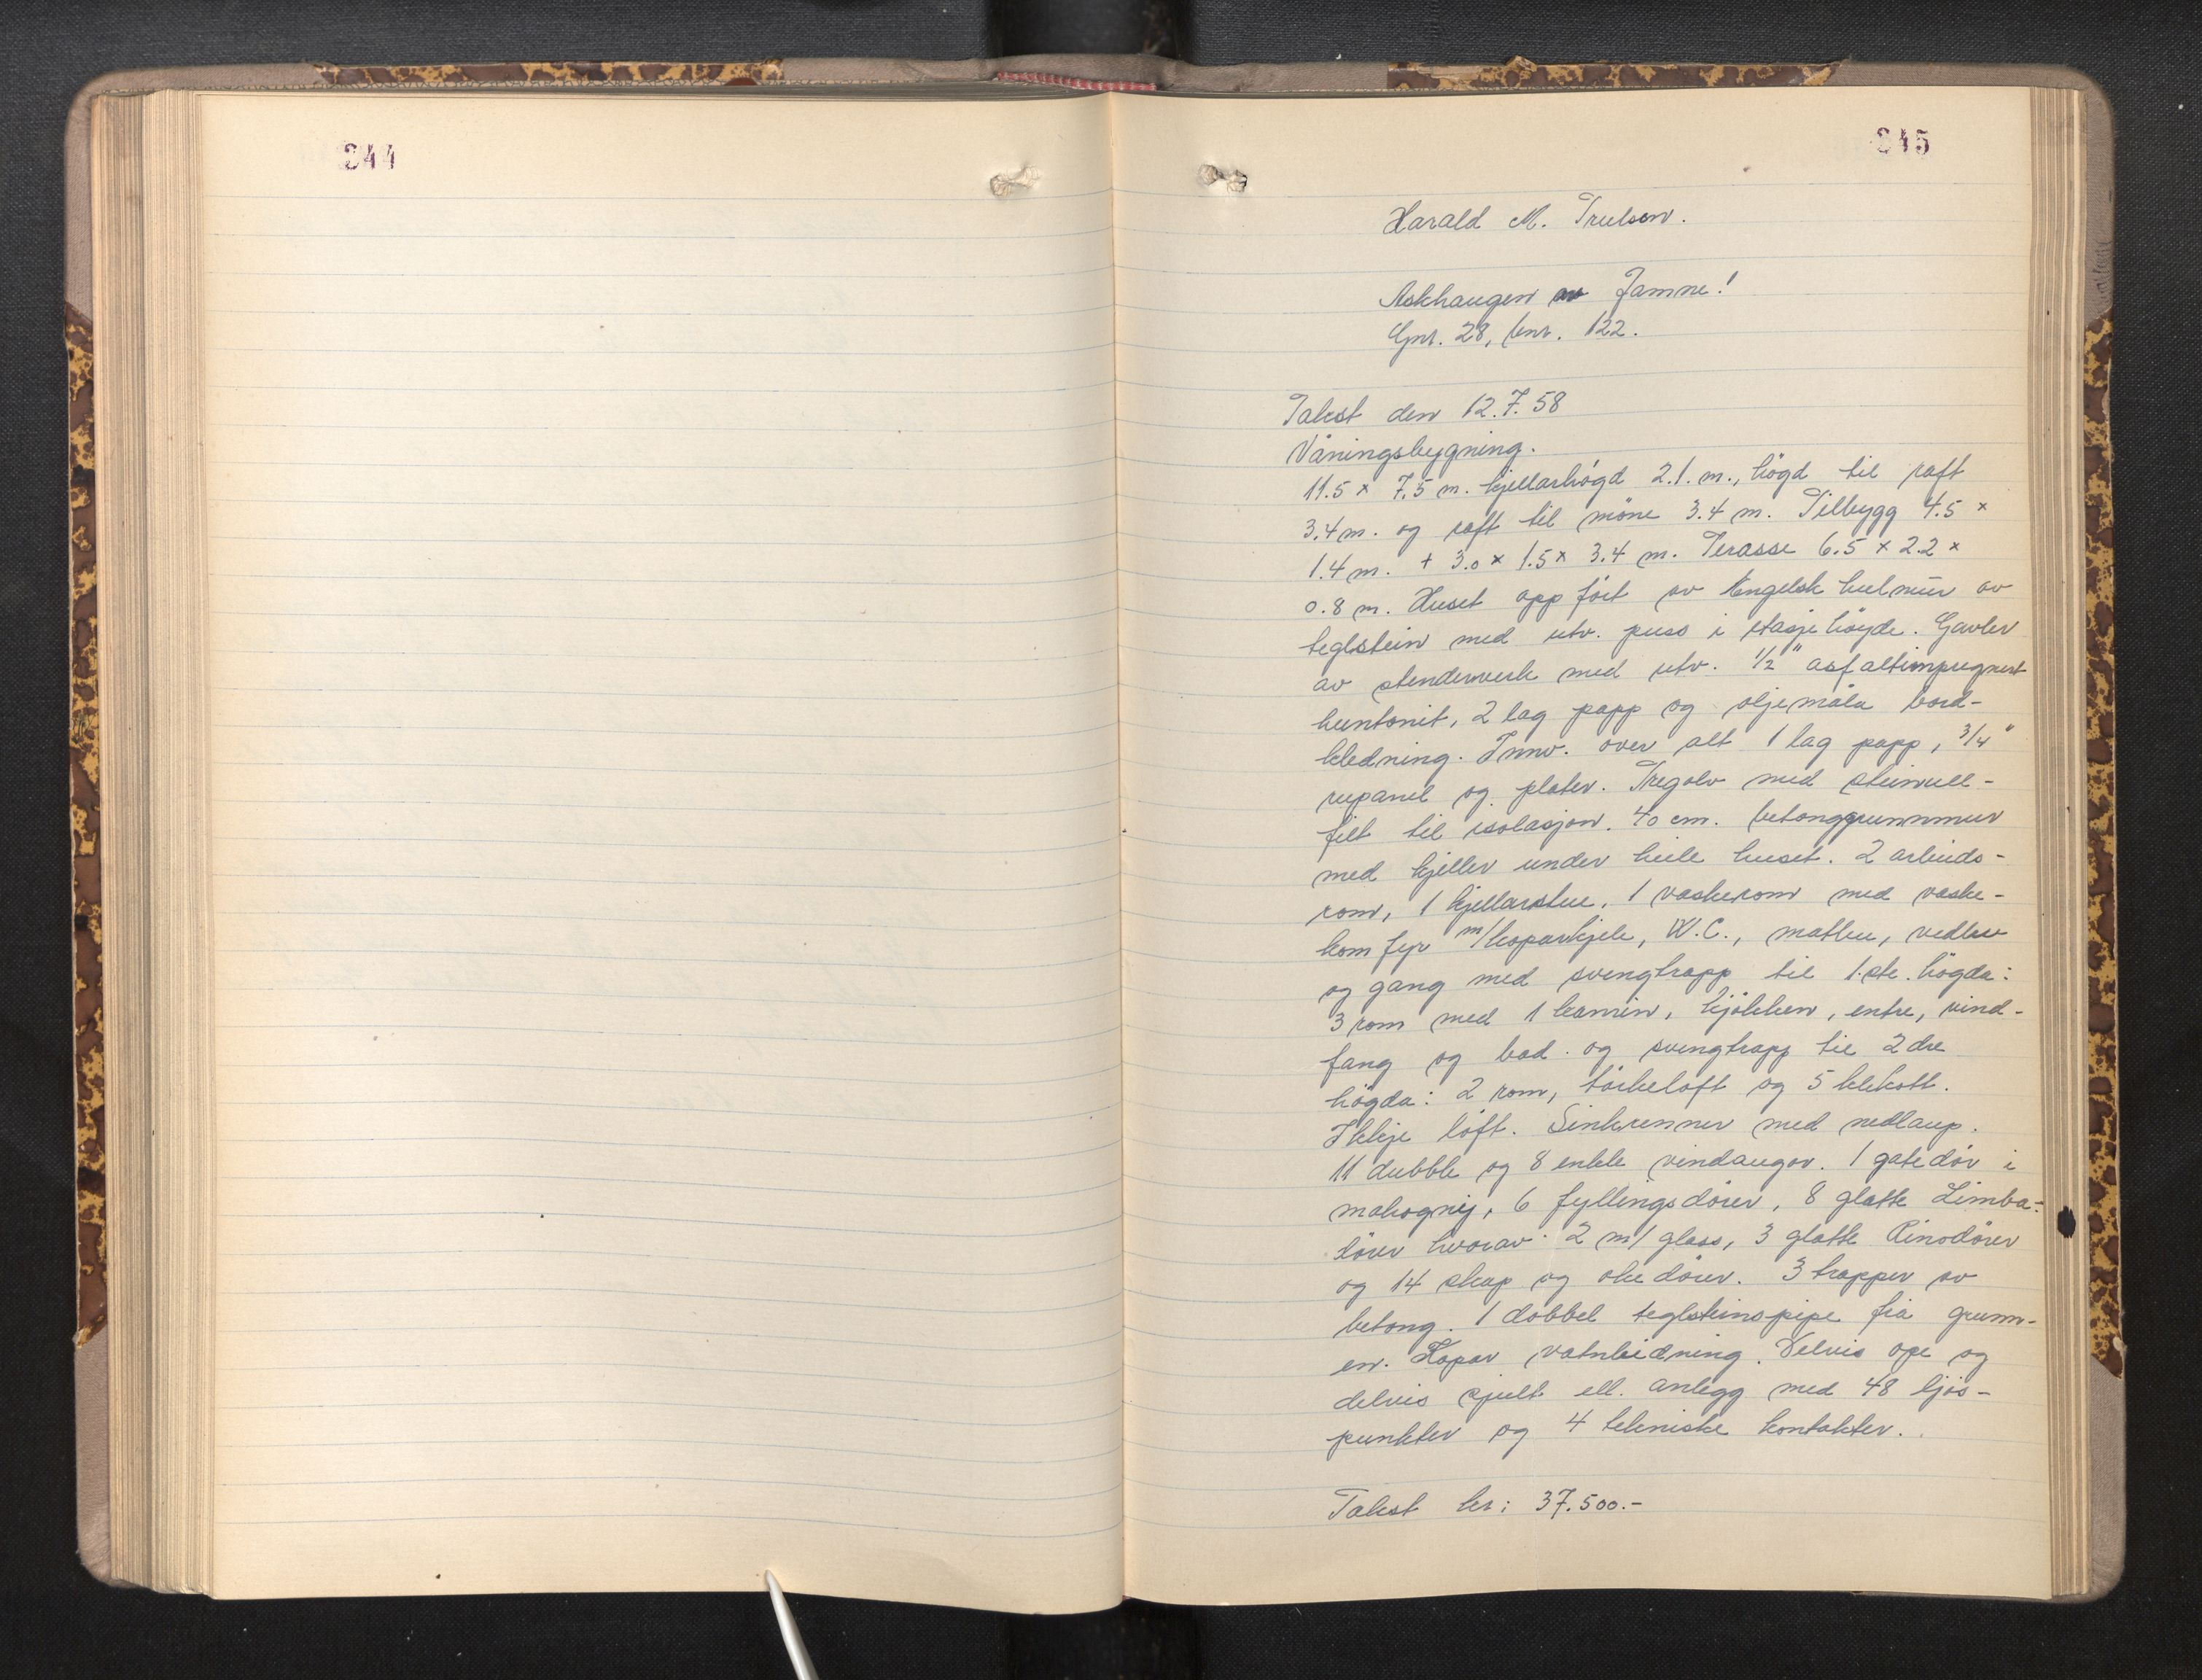 244
245
Harald M. Trulsen.
Askhaugen av Jamne!
Gnr. 28, bnr. 122.
Takst den 12.7.58
Våningsbygning.
11.5 x 7.5 m. kjellarhøgd 2.1. m., høgd til raft
3.4 m. og raft til møne 3.4 m. Tilbygg 4.5 x
1.4 m. + 3.0 x 1.5 x 3.4 m. Terasse 6.5 x 2.2 x
0.8 m. Huset oppført av Engelsk hulmur av
teglstein med utv. puss i etasjehøyde. Gavler
av stenderverk med utv. 1/2" asfaltimpregnert
huntonit, 2 lag papp og oljemåla bord-
kledning. Innv. over alt 1 lag papp, 3/4"
rupanel og plater. Tregolv med steinull-
filt til isolasjon. 40 cm. betonggrunnmur
med kjeller under heile huset. 2 arbeids-
rom, 1 kjellarstue, 1 vaskerom med vaske-
komfyr m/koparkjele, W.C., matbu, vedbu
og gang med svengtrapp til 1.ste. høgda:
3 rom med 1 kamin, kjøkken, entre, vind-
fang og bad og svengtrapp til 2dre
høgda: 2 rom, tørkeloft og 5 klekott.
Ikkje loft. Sinkrenner med nedlaup.
11 dubble og 8 enkle vindaugor. 1 gatedør i
mahogny, 6 fyllingsdører, 8 glatte Limba-
dører hvorav 2 m/ glass, 3 glatte Rinodører
og 14 skap og dører. 3 trapper av
betong. 1 dobbel teglsteinspipe frå grunn-
en. Kopar vatnleidning. Delvis ope og
delvis sjult ell. anlegg med 48 ljos-
punkter og 4 tekniske kontakter.
Takst kr: 37.500.-